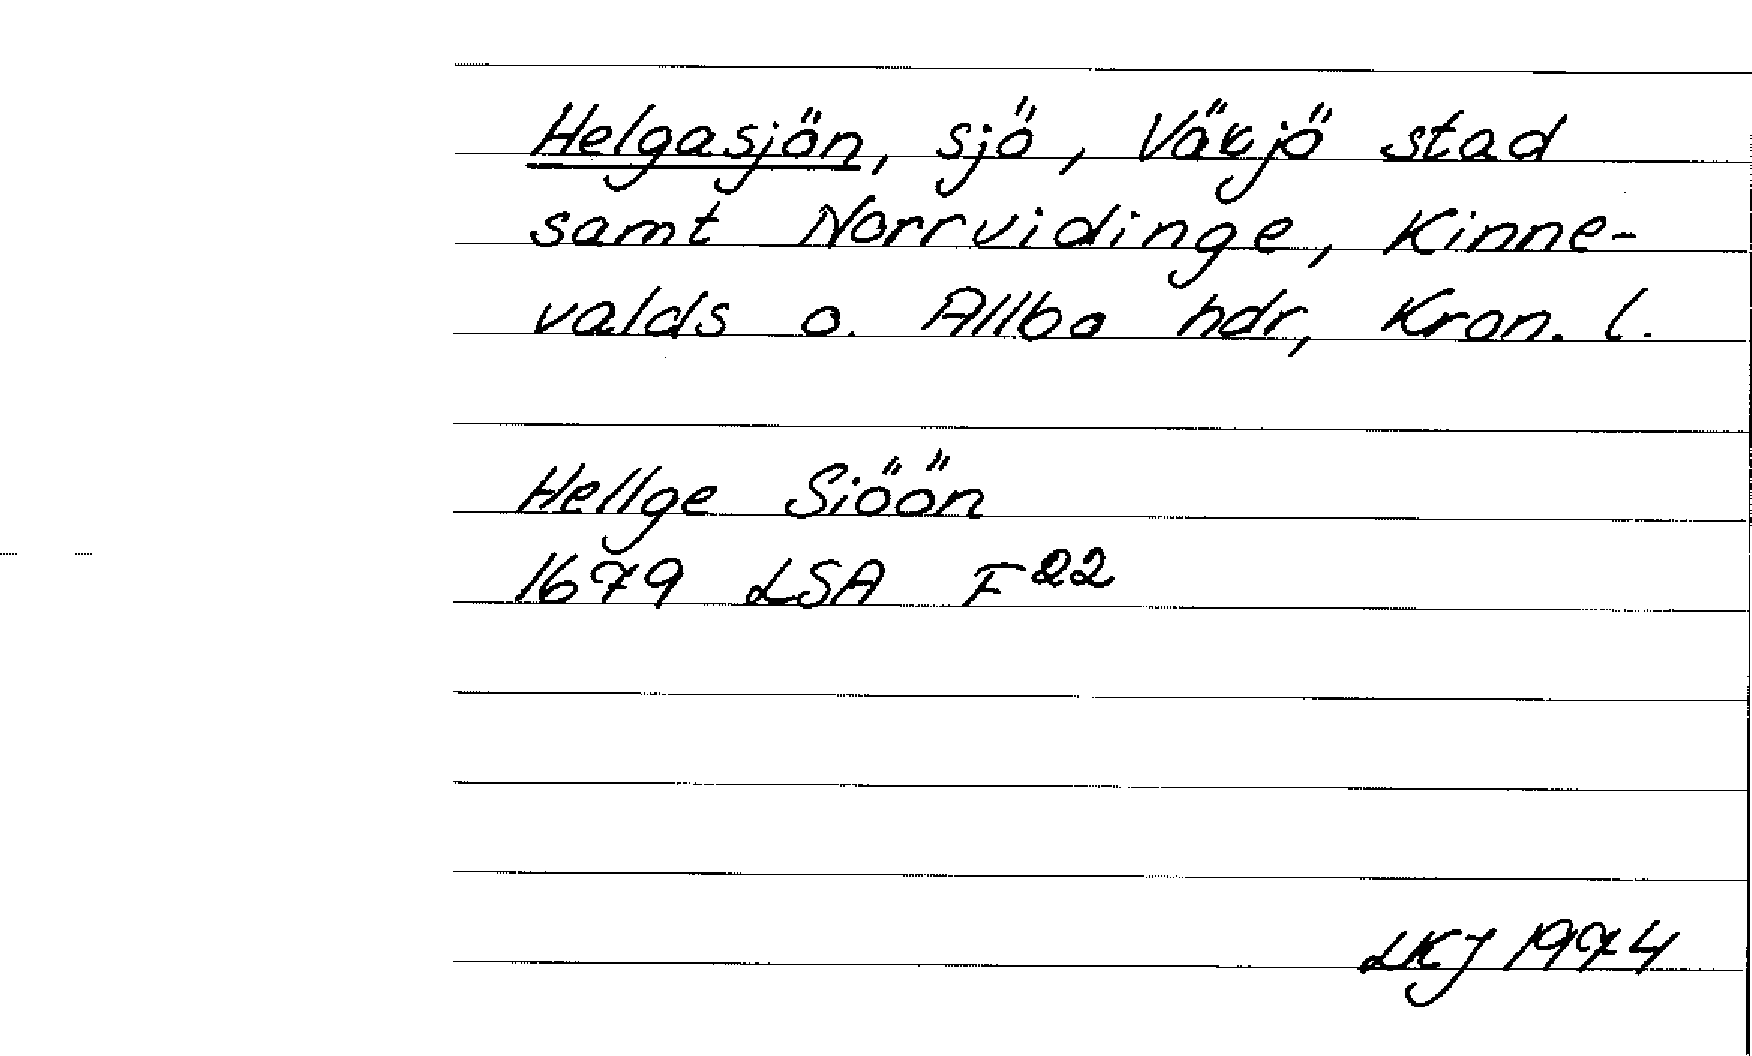 Helgasjön, sjö, Växjö stad
samt Norrvidinge, Kinne-
valds o. Allbo hdr, Kron. l.
Hellge Siöön
1679 LSA F22
LKJ 1974